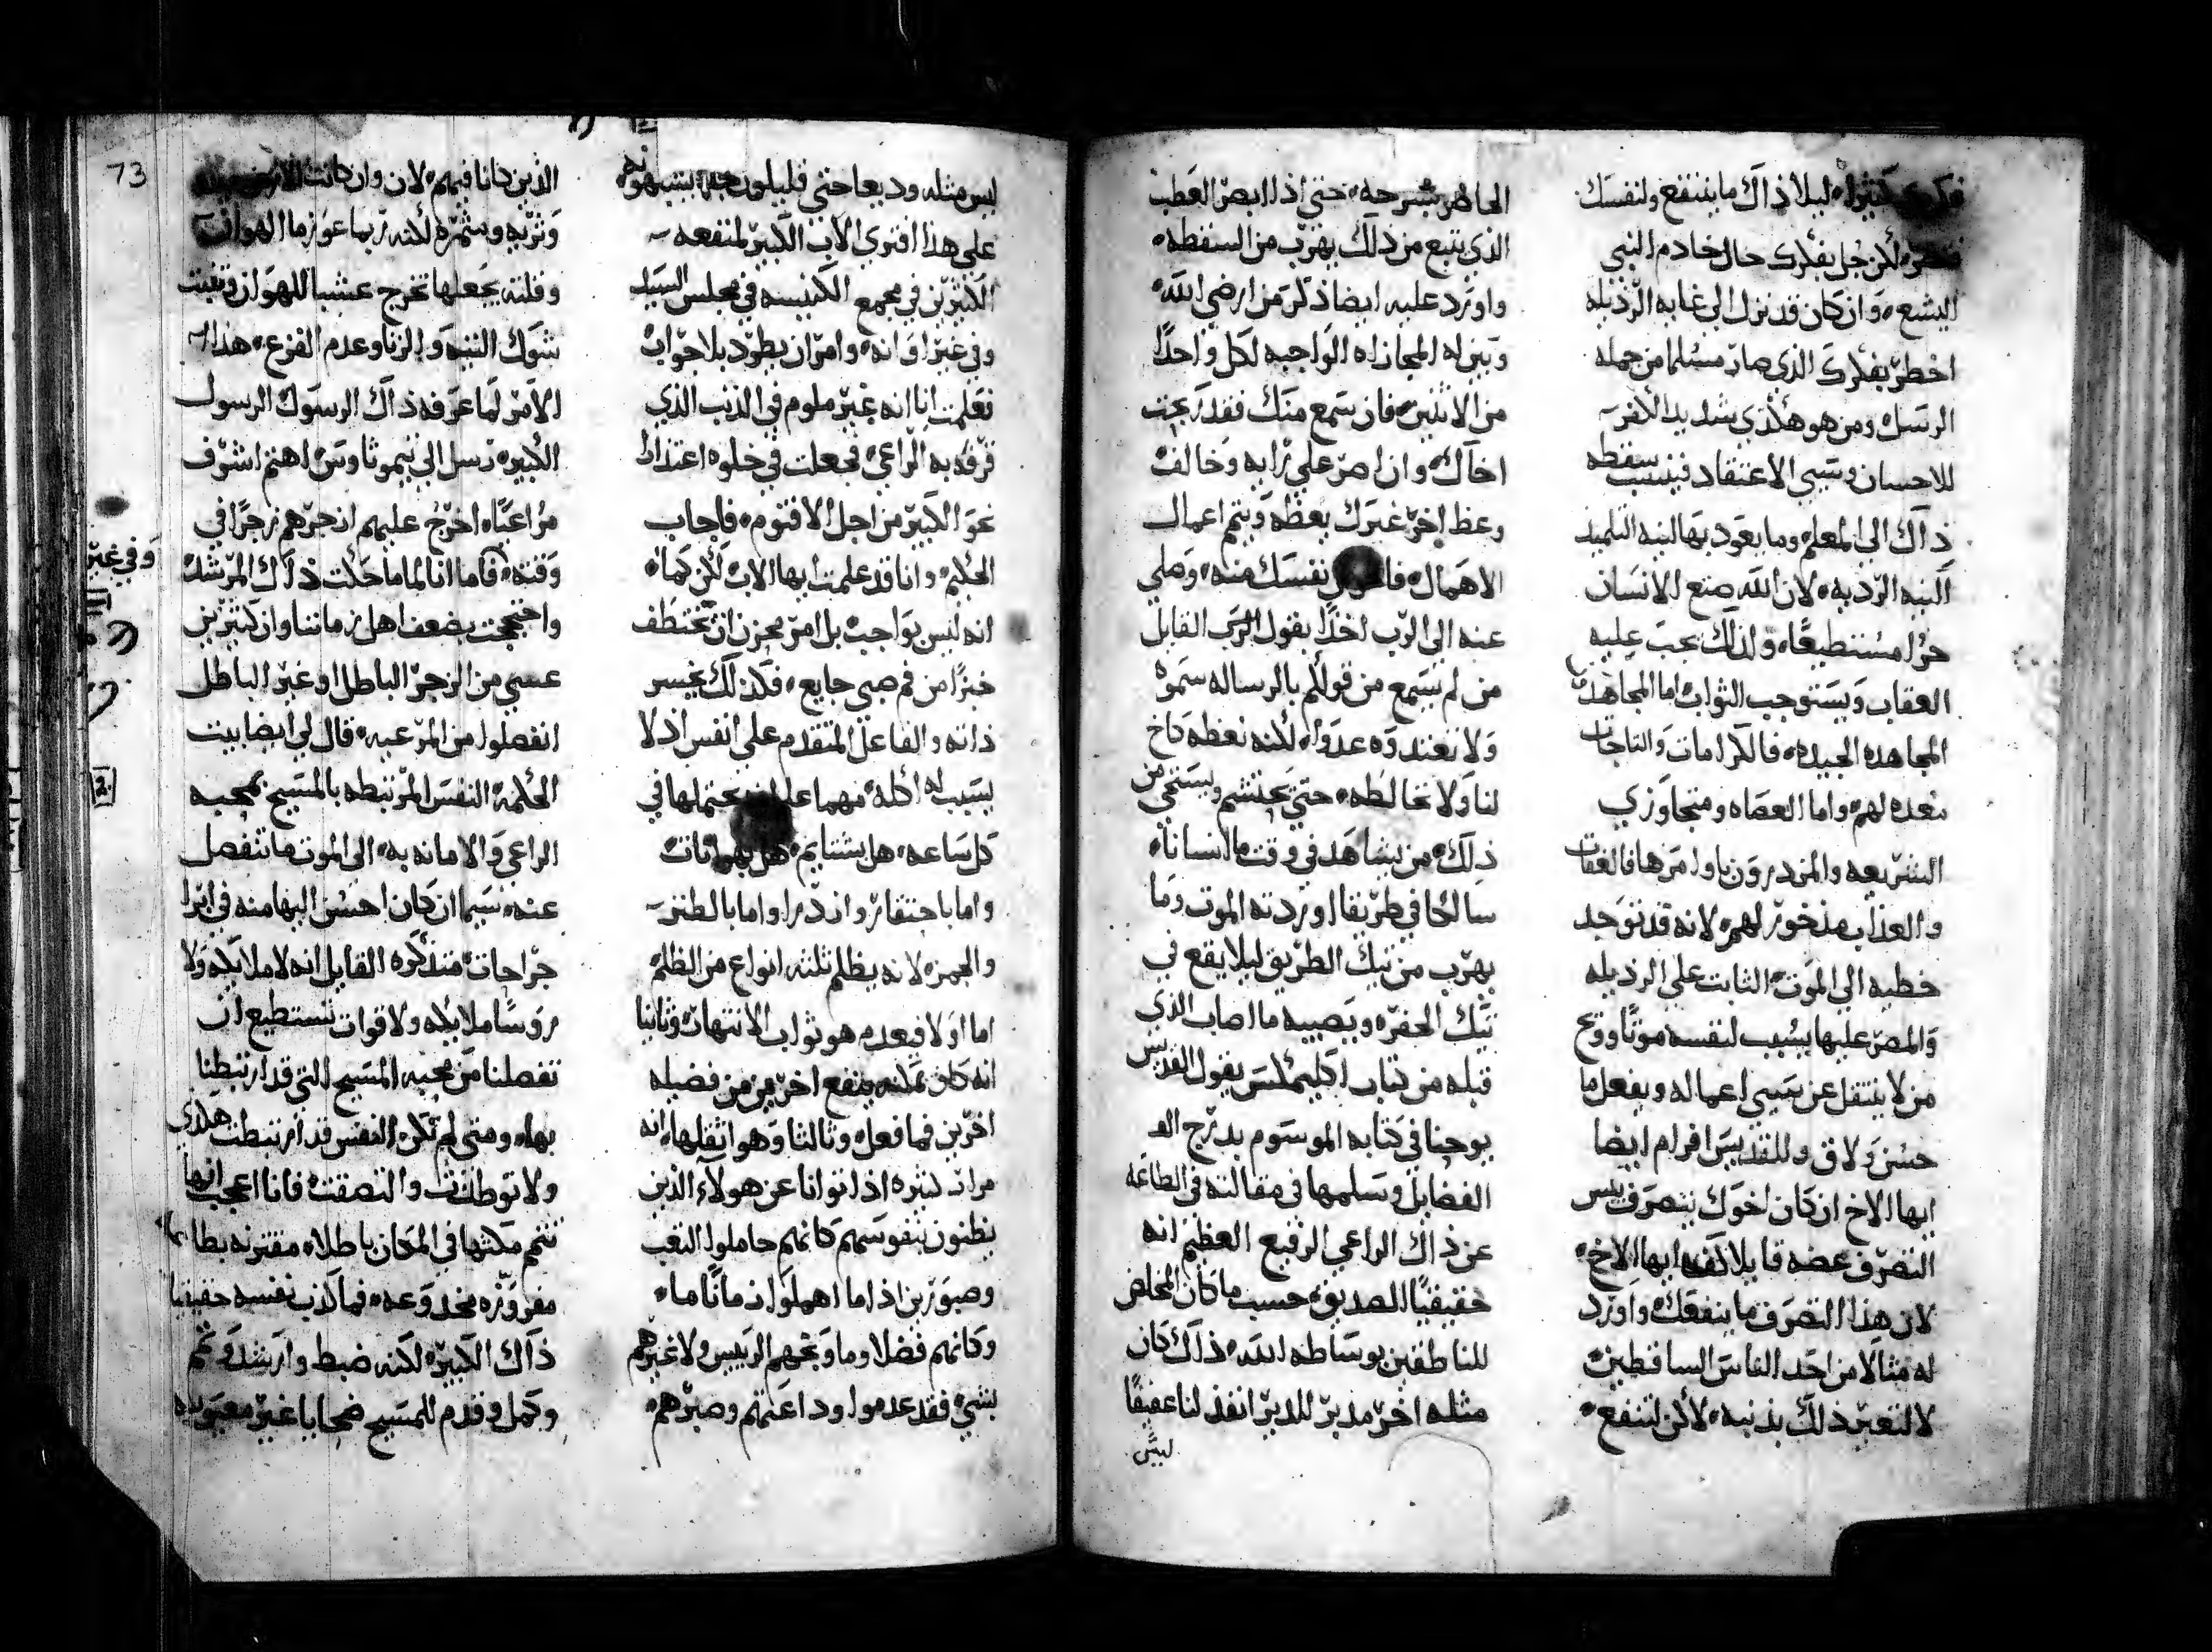 كثيرا. ليلا ذاك ما ينتفع ولنفسك
لكن جل بفكرك حال خادم النبي
اليشع. وان كان قد نزل الى غايه الرذيله
اخطر بفكرك الذي صار مسلما من جمله
الرسل ومن هو هكذي شديد الكفر
للاحسان وسيي الاعتقاد فينسب سقطه
ذاك الى المعلم. وما يعود بها لنيه التلميذ
النيه الرديه. لان الله صنع الانسان
حرا مستطيعا. ولذلك يجب عليه
العقاب ويستوجب الثواب اما المجاهدين
المجاهده الجيده. فالكرامات والتاجات
معده لهم. واما العصاه ومتجاوزي
الشريعه والمزدرون باوامرها فالعقاب
والعذاب مذخور لهم. لانه قد توجد
خطيه الى الموت. الثابت على الرذيله
والمصر عليها يسبب لنفسه موتا وويح
من لا ينتقل عن سيي اعماله ويفعل ما
حسن ولاق وللقديس افرام ايضا
ايها الاخ ان كان اخوك يتصرف بيس
التصرف عضه قايلا كف ايها الاخ.
لان هذا التصرف ما ينفعك. واورد
له مثالا من احد الناس الساقطين.
لا لتعير ذلك بذنبه. لاكن لتنفع.
الحاضر بشرحه. حتى اذا ابصر العطب
الذي يتبع من ذلك يهرب من السقطه.
واورد عليه ايضا ذكر من ارضى الله.
وبين له المجازاه الواجبه لكل واحدا
من الاثنين. فان سمع منك فقد ربحت
اخاك. وان اصر على رايه وخالف
وعظ اخر غيرك بعظه ويتم اعمال
الاهمال. نفسك منه. وصلي
عنه الى الرب اخذا بقول الرب القايل
من لم يسمع من قولكم بالرساله سموه
ولا تعتدوه عدوا. لكنه نعظه كاخ
لنا ولا نخالطه. حتى يحتشم ويستحي من
ذلك. من يشاهد في وقت ما انسانا.
سالكا في طريقا اوردته الموت وما
يهرب من تيك الطريق ليلا يقع في
تيك الحفره ويصيبه ما اصاب الذي
قبله من كتاب اكليمكس يقول القديس
يوحنا في كتابه الموسوم بدرج الف
الفضايل وسلمها في مقالته في الطاعه
عن ذاك الراعي الرفيع العظيم انه
حقيقيا الصديق. حسب ما كان المخلص
للناطقين بوساطه الله. ذاك كان
مثله اخر مدبر للدير انفذ لنا عفيفا
ليس
ليس مثله وديعا حتى قليلون يشبهونه
على هذا افترى الاب الكبير لمنفعه
الكثيرين في مجمع الكنيسه في مجلس السيد
وفي غير اوانه. وامر ان يطرد بلا جواب
فعلمت انا انه غير ملوم في الذنب الذي
قرفه به الراعي. فجعلت في خلوه اعتذارا
نحو الكبير من اجل الاقنوم. فاجاب
الحكيم. وانا قد علمت ايها الاب لكن كما.
انه ليس بواجب بل امر محزن ان نختطف
خبزا من فم صبي جايع. فكذلك يخسر
ذاته والفاعل المتقدم على انفس اذ لا
يسبب له اكله. مهما يحتملها في
كل ساعه. هل بشتايم. هل بهوانات
واما باحتقار وازدرا. واما بالطنز
والجمزه لانه يظلم ثلثه انواع من الظلم
اما اولا فيعدم هو ثواب الانتهار. وثانيا
انه كان يمكنه ينفع اخرين من فضيله
اخرين فما فعل. وثالثا وهو اثقلها. انه
مرات كثيره اذا توانا عن هولاء الذين
يظنون بنفوسهم كانهم حاملوا التعب
وصبورين اذا ما اهملوا زمانا ما.
وكانهم فضلا وما وبخهم الرييس ولا غيرهم
بشي فقد عدموا وداعتهم وصبرهم.
73
الذين كانا فيهم. لان وان كانت الارض
وثريه ومثمره لكنه ربما عوز ما الهوان
وقلته يجعلها تخرج عشبا للهوان وتنبت
شوك التيه والزنا وعدم الفزع. هذا
الامر لما عرفه ذاك الرسول الرسول
الكبير. رسل الى تيموثاوس اهتم اشرف
مراعيا. اخرج عليهم ازجرهم زجرا في
وقته. فاما انا لما ماحكت ذاك المرشد
واحتججت بضعف اهل زماننا وان كثيرين
عسي من الزجر الباطل او غير الباطل
انفصلوا من المرعيه. قال لي ايضا بيت
الحكمه. النفس المرتبطه بالمسيح بمحبه
الراعي والامانه به. الى الموت ما تنفصل
عنه. سيما ان كان احسن اليها منه في ابرا
جراحات. متذكره القايل انه لا ملايكه ولا
روسا ملايكه ولا قوات تستطيع ان
تفصلنا من محبه المسيح التي قد ارتبطنا
بها. ومتى لم تكن النفس قد ارتبطت هكذي
ولا توطدت والتصقت. فانا اعجب انها
تتم مكثها في المكان باطلا. مقترنه بطاعه
مفروزه مخدوعه. فما كذب نفسه حقيقيا
ذاك الكبير. لكنه ضبط وارشد وتمم
وكمل وقدم للمسيح ضحايا غير معيوبه
وفي غير